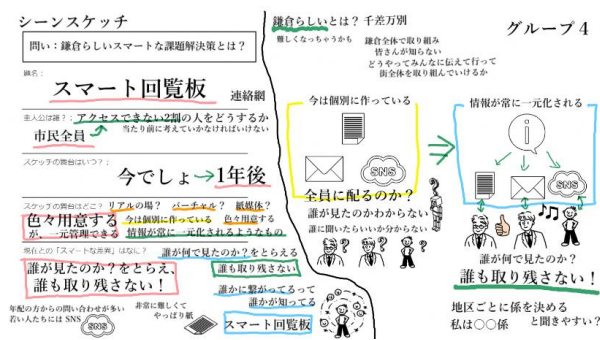 シーンスケッチ
問い：鎌倉らしいスマートな課題解決策とは？
題名：
スマート回覧板
連絡網
主人公は誰？：アクセスできない2割の人をどうするか
当たり前に考えていかなければいけない
市民全員
スケッチの舞台はいつ？：
今でしょ→1年後
スケッチの舞台はどこ？
リアルの場？
バーチャル？
紙媒体？
色々用意する
が、一元管理できる
今は個別に作っている
色々用意する
情報が常に一元化されるようなもの
現在との「スマートな差異」はなに？
誰が何で見たのか？をとらえる
誰が見たのか？をとらえ、
誰も取り残さない！
誰も取り残さない
誰かに繋がってるって
誰かが知ってる
年配の方からの問い合わせが多い
若い人たちには SNS
SNS
非常に難しくて
やっぱり紙
スマート回覧板
鎌倉らしいとは？ 千差万別
難しくなっちゃうかも
鎌倉全体で取り組み
皆さんが知らない
どうやってみんなに伝えて行って
街全体を取り組んでいけるか
グループ４
今は個別に作っている
SNS
全員に配るのか？
誰が見たのかわからない
誰に聞いたらいいか分からない
情報が常に一元化される
SNS
誰が何で見たのか？
誰も取り残さない！
地区ごとに係を決める
私は○○係
と聞きやすい？